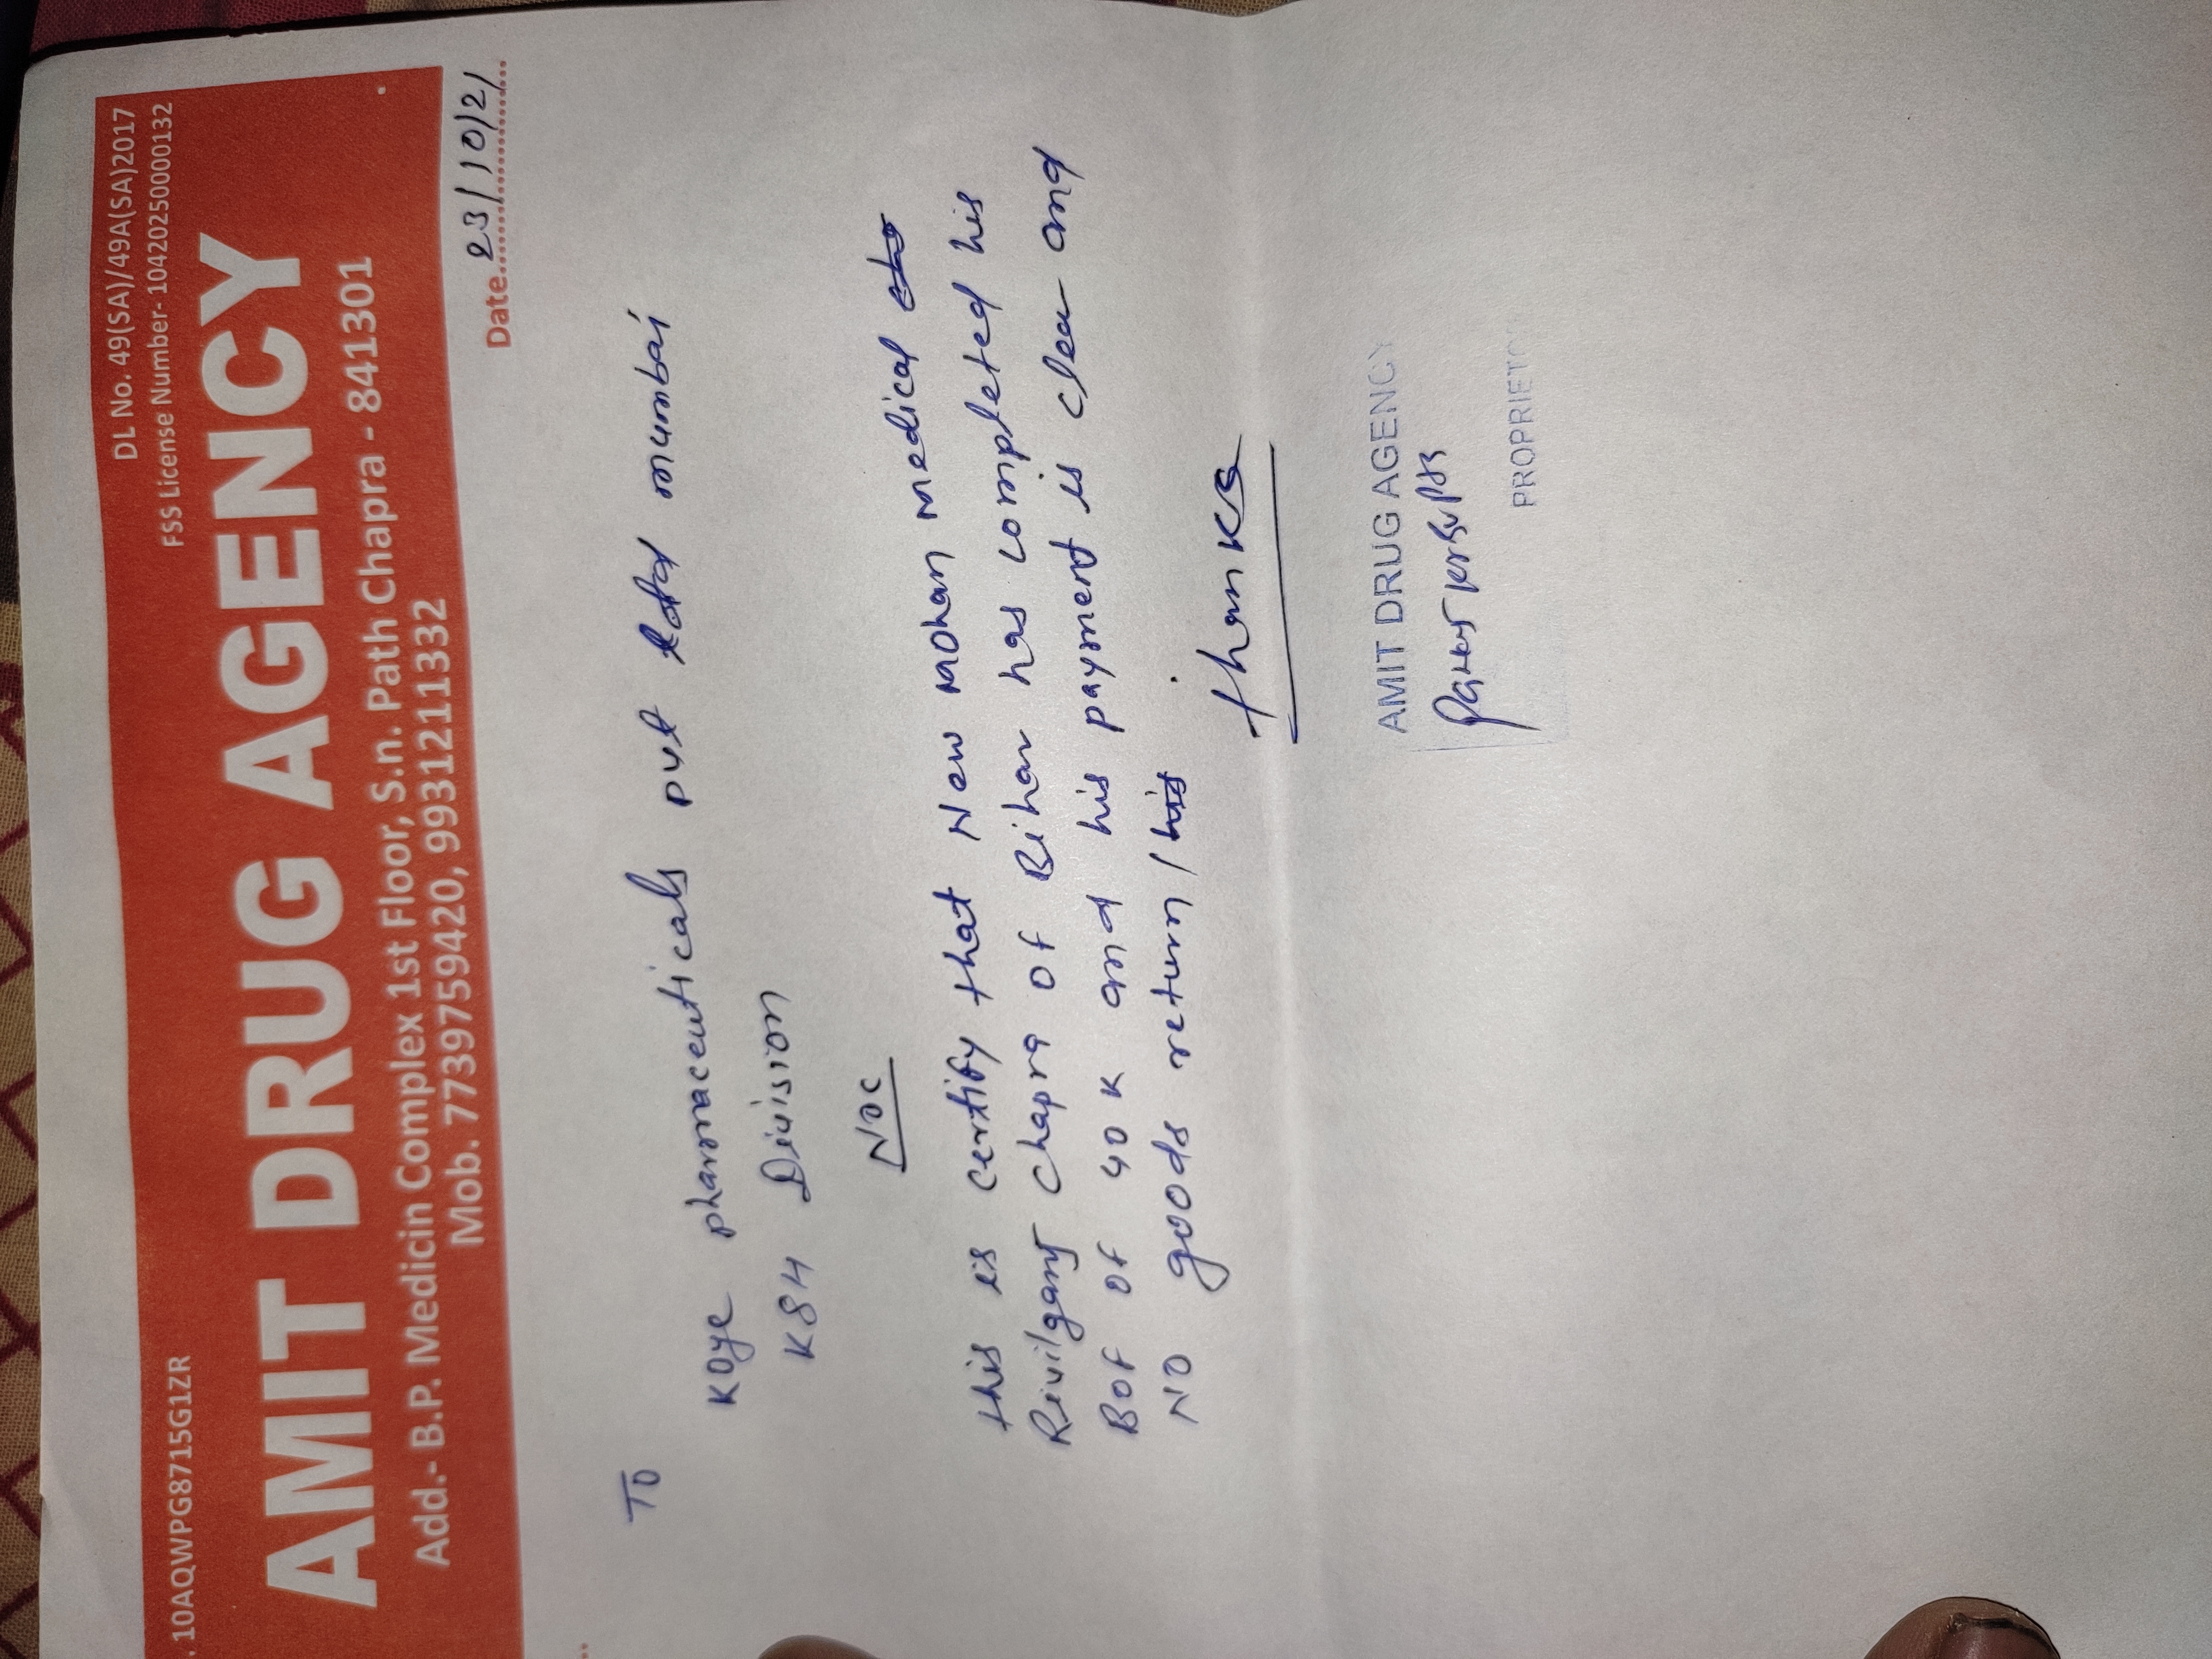 . 10AQWPG8715G1ZR
DL No. 49(SA)/49A(SA)2017
FSS License Number- 10420250000132
AMIT DRUG AGENCY
Add.- B.P. Medicin Complex 1st Floor, S.n. Path Chapra - 841301
Mob. 7739759420, 9931211332
Date 23/10/21
To
Koye pharmaceuticals pvt mumbai
K84 Division
NOC
this is certify that New mohan medical
Rivilganj Chapra of Bihar has completed his
Bof of 40 K and his payment is clear and
NO goods return / his
thanks
AMIT DRUG AGENCY
PROPRIETO